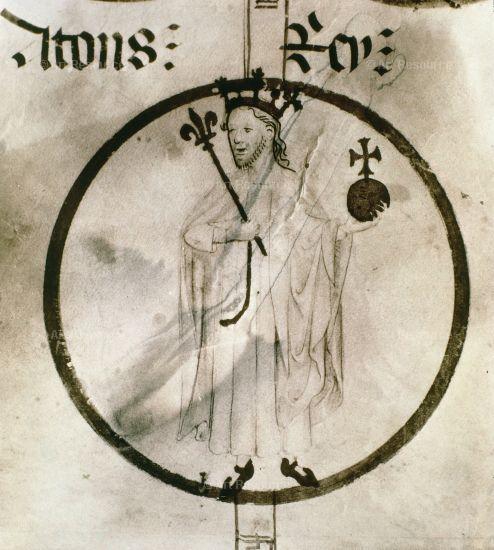 Afons⁝ Rey⁝